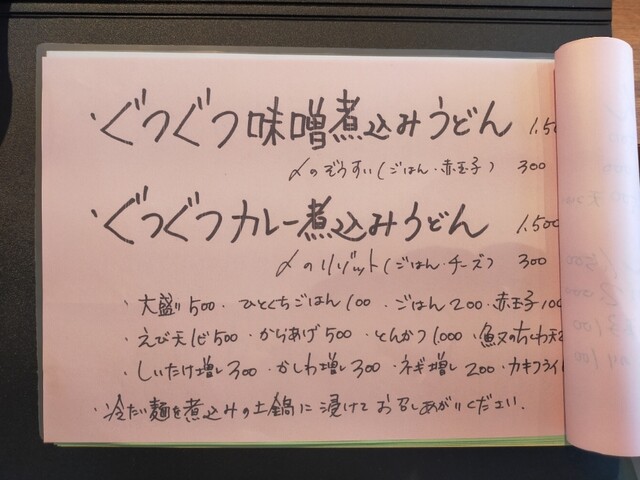 ・ぐつぐつ味噌煮込みうどん 1.50
〆のぞうすい(ごはん・赤玉子) 300
・ぐつぐつカレー煮込みうどん 1.500
〆のリゾット(ごはん・チーズ) 300
・大盛り500・ひとくちごはん100・ごはん200・赤玉子100
・えび天1ピ500・からあげ500・とんかつ1.000・魚又のちくわ天2
・しいたけ増し300・かしわ増し300・ネギ増し200・カキフライ
・冷たい麺を煮込みの土鍋に浸けてお召しあがりください.